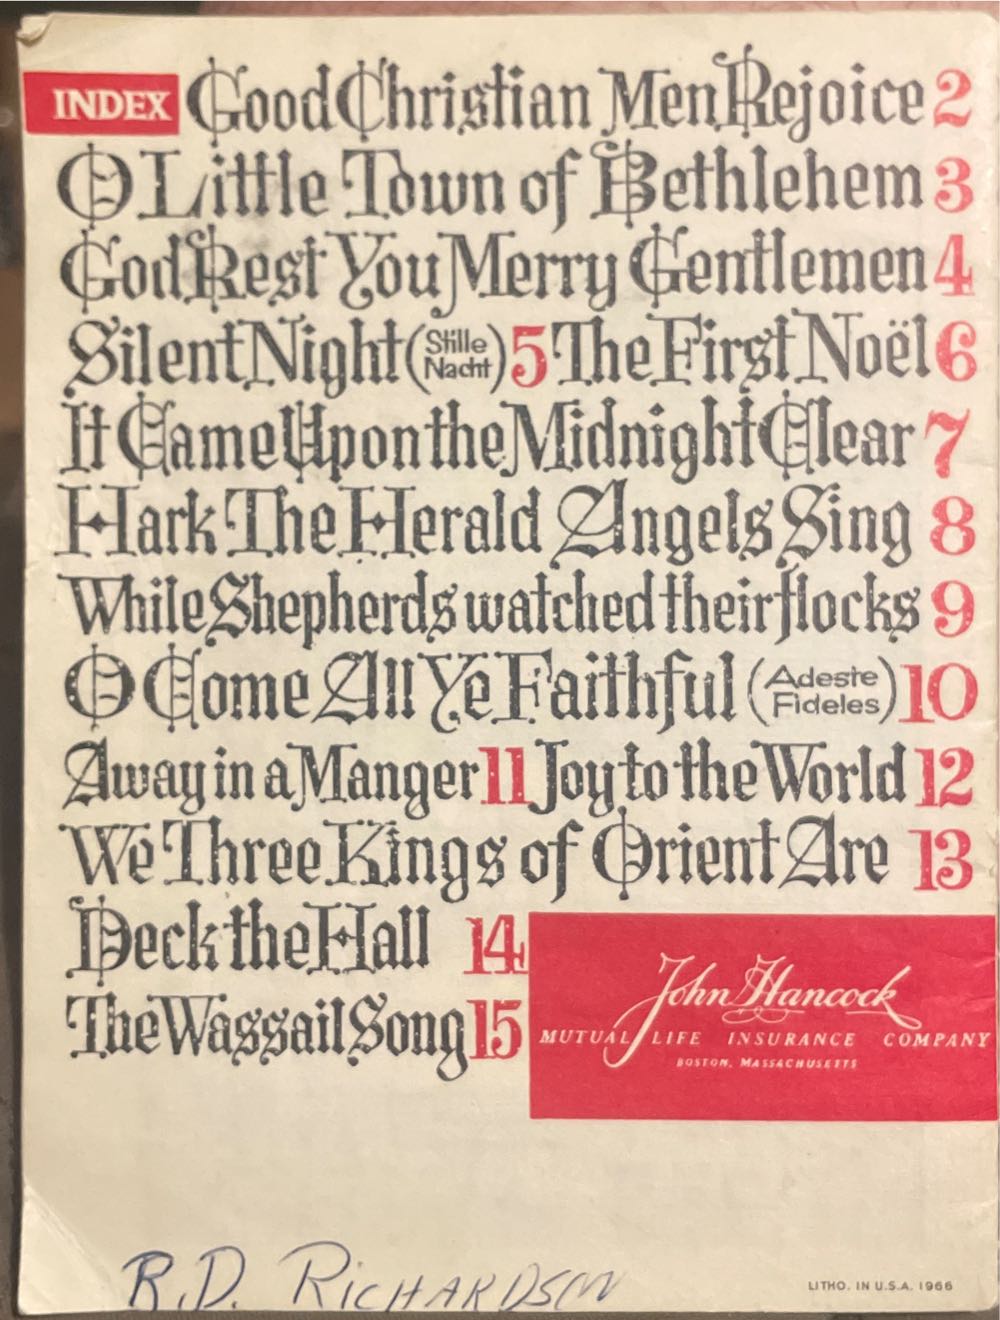 INDEX Good Christian Men Rejoice 2
O Little Town of Bethlehem 3
God Rest You Merry Gentlemen 4
Silent Night (Stille Nacht) 5 The First Noël 6
It Came Upon the Midnight Clear 7
Hark The Herald Angels Sing 8
While Shepherds watched their flocks 9
O Come All Ye Faithful (Adeste Fideles) 10
Away in a Manger 11 Joy to the World 12
We Three Kings of Orient Are 13
Deck the Hall 14
The Wassail Song 15
John Hancock
MUTUAL LIFE INSURANCE COMPANY
BOSTON, MASSACHUSETTS
R.D. RICHARDSON
LITHO. IN U.S.A. 1966